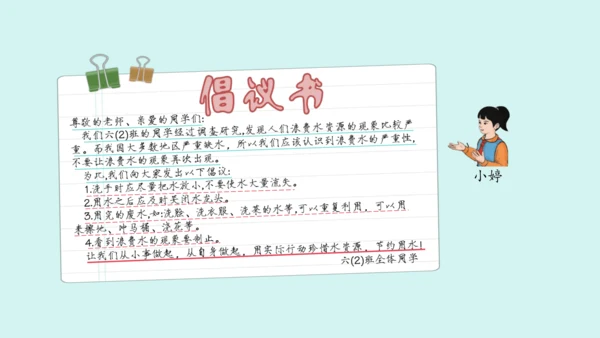 倡议书
尊敬的老师、亲爱的同学们:
我们六(2)班的同学经过调查研究,发现人们浪费水资源的现象比较严
重。而我国大多数地区严重缺水，所以我们应该认识到浪费水的严重性,
不要让浪费水的现象再次出现。
为此,我们向大家发出以下倡议:
1.洗手时应尽量把水放小,不要使水大量流失。
2.用水之后应及时关闭水龙头。
3.用完的废水,如:洗脸、洗衣服、洗菜的水等,可以重复利用，可以用
来擦地、冲马桶、浇花等。
4.看到浪费水的现象要制止。
让我们从小事做起，从自身做起，用实际行动珍惜水资源，节约用水!
六(2)班全体同学
小婷